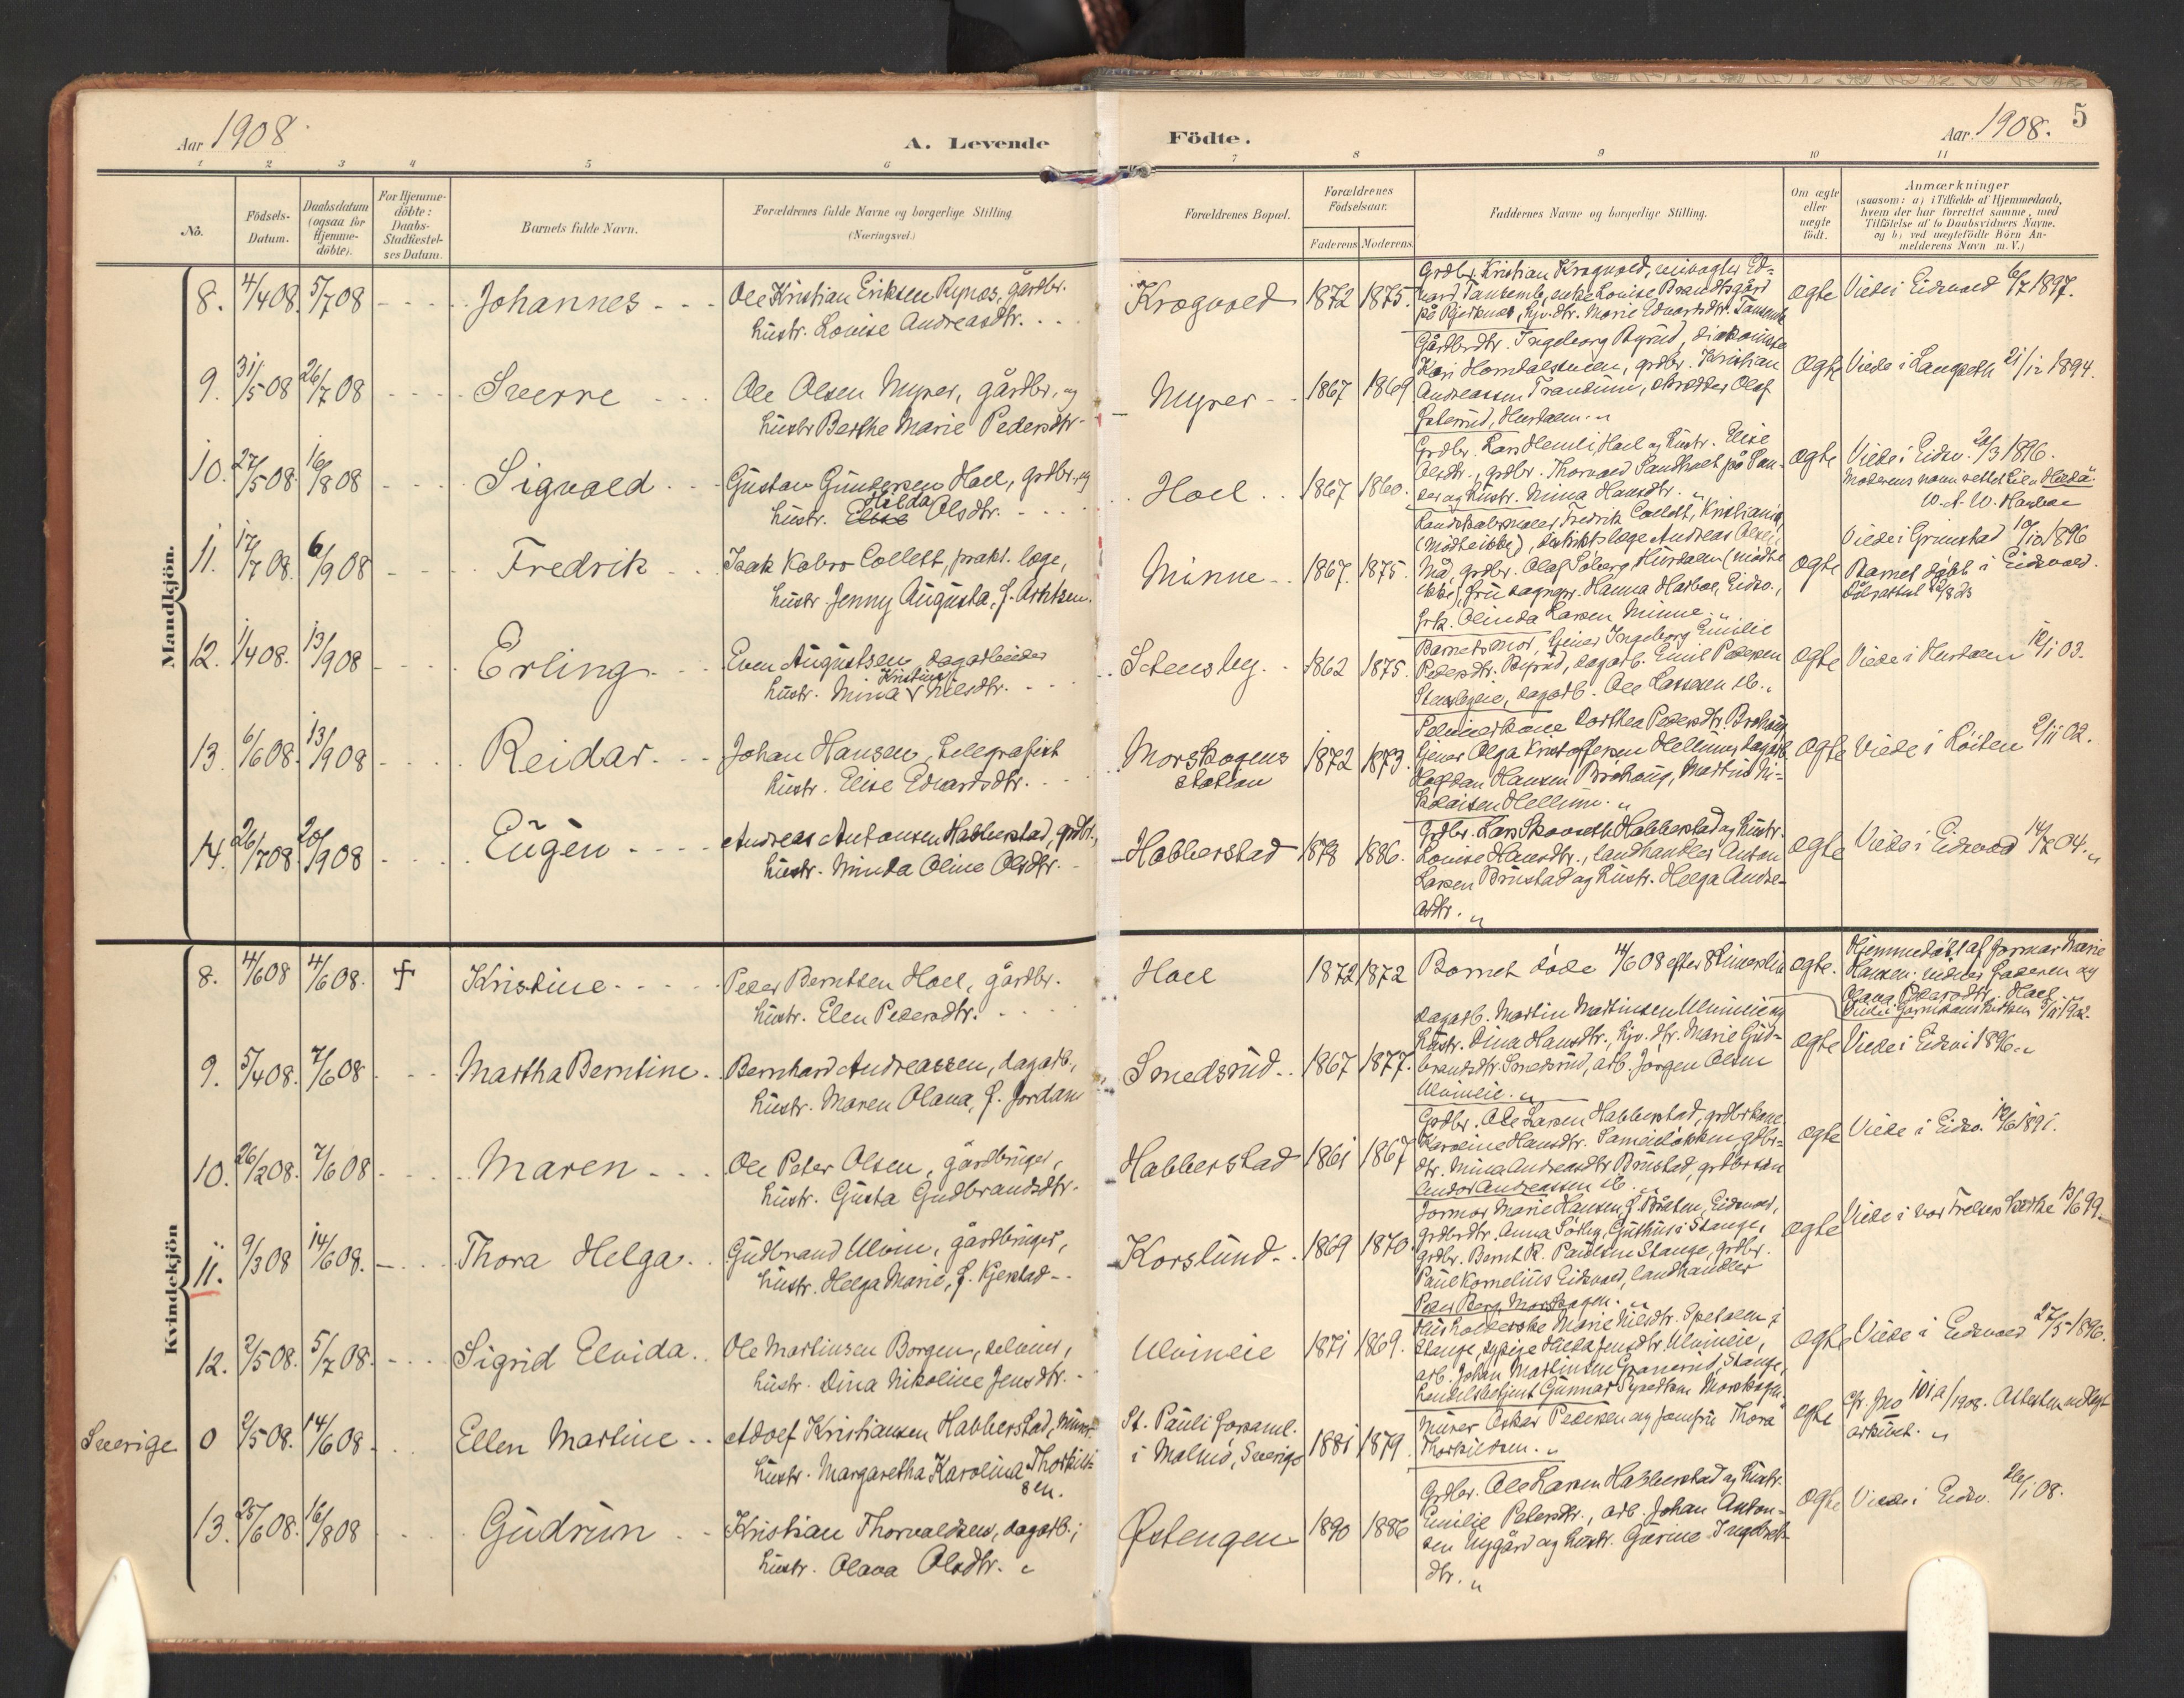 Aar 1908
A. Levende
Födte.
Aar 1908. 5
1 2 3 4 5 6 7 8 9 10 11
No.
Födsels-Datum.
Daabsdatum (ogsaa for Hjemme-döbte).
For Hjemme-döbte: Daabs-Stadfæstel-ses Datum.
Barnets fulde Navn.
Forældrenes fulde Navne og borgerlige Stilling (Næringsvei.)
Forældrenes Bopæl.
Forældrenes Födselsaar.
Faderens Moderens
Faddernes Navne og borgerlige Stilling.
Om ægte eller uægte födt.
Anmærkninger
(saasom: a) i Tilfælde af Hjemmedaab,
hvem der har forrettet samme, med
Tilföielse af to Daabsvidners Navne.
og b) ved uægtefödte Börn An-
melderens Navn m. V.)
Mandkjön.
8. 4/4 08. 5/7 08 Johannes
Ole Kristian Eriksen Rynas, gårdbr.
hustr. Lovise Andreasdtr.
Krogvold 1872 1875.
Grdbr. Kristian Krogvold, ungkarl Ed-
vard Tansemb, enke Louise Brandtsgård
ægte Viede i Eidsvold 6/7 1897.
9. 31/5 08 26/7 08 Sverre
Ole Olsen Myrer, gårdbr. og
hustr Berthe Marie Pedersdtr.
Myrer 1867 1869
Gårdbrdtr. Ingeborg Byrud, diakonisse
Kari Horndalstuen, grdbr. Kristian
Andreassen Trandum, Olaf
ægte Viede i Langseth 21/12 1894.
10. 27/5 08. 16/8 08 Sigvald
Gustav Gundersen Hoel, grdbr. og
hustr. Elise Hilda Olsdtr.
Hoel 1867 1860.
Grdbr. Lars Hemli Hoel og hustr. Elise
Olsdtr., grdbr. Thorvald Sandholt på San-
der og hustr. Mina Hansdtr.
ægte Viede i Eidsv. 20/3 1896.
Moderens navn rettet til "Hilda".
11. 17/7 08. 6/9 08 Fredrik
Isak Kobro Collett, prakt. læge,
hustr Jenny Augusta, f. Arntzen.
Minne 1867. 1875.
Landskabsmaler Fredrik Collett, Kristiania,
(mödte ikke), distriktslæge Andreas Olsen
Nå, grdbr. Olaf Söberg Hurdalen (mödte
ikke), fru sagfgr. Hanna Harboe, Eidsv.,
frk. Olinda Larsen Minne.
ægte Viede i Grimstad 10/10 1896
Barnet döbt i Eidsvold.
12. 1/4 08. 13/9 08 Erling
Even Augustsen, dagarbeider
hustr. Mina Kristine Nilsdtr.
Stensby 1862 1875.
Barnets mor, tjener Ingeborg Emilie
Pedersdtr. Byrud, dagarb. Emil Pedersen
Stensbyeie, dagarb. Ole Larssen ib.
ægte Viede i Hurdalen 12/1 03.
13. 6/6 08. 13/9 08 Reidar
Johan Hansen, telegrafist
hustr. Elise Edvardsdtr.
Morskogens station 1872 1873.
Selveierkone Dorthea Pedersdtr. Brohaug,
tjener Olga Kristoffersen Hellum, dagarb.
Halfdan Hansen Brohaug, Martin Ni-
kolaisen Hellum.
ægte Viede i Löiten 2/11 02.
14. 26/7 08. 20/9 08 Eugen
Andreas Antonsen Habberstad, grdbr.,
hustr. Minda Oline Olsdtr.
Habberstad 1878 1886.
Grdbr. Lars Skovseth Habberstad og hustr.
Louise Hansdtr., landhandler Anton
Larsen Brustad og hustr. Helga Andre-
asdtr.
ægte Viede i Eidsvold 14/7 04.
Kvindekjön
8. 4/6 08 4/6 08. † Kristine
Peder Berntsen Hoel, gårdbr.
hustr. Elen Pedersdtr.
Hoel 1872 1872
Barnet döde 4/6 08 efter 8 timers liv
ægte. Hjemmedöbt af jormor Marie
Hansen. vidner faderen og
Olava Pedersdtr. Hoel
9. 5/4 08. 7/6 08 Martha Berntine
Bernhard Andreassen, dagarb.,
hustr. Maren Olava, f. Jordan
Smedsrud 1867 1877.
Dagarb. Martin Martinsen Ulvineie og
hustr. Dina Hansdtr., tjv. dtr. Marie Gud-
brandsdtr. Smedsrud, arb. Jörgen Olsen
Ulvineie.
ægte Viede i Eidsv. 1896.
10. 26/2 08. 7/6 08 Maren
Ole Peter Olsen, gårdbruger,
hustr. Gusta Gudbrandsdtr.
Habberstad 1861 1867
Grdbr. Ole Larsen Habberstad, grdbrkone
Karoline Hansdtr. Samuelsökken, gdbr-
dtr. Mina Andreasdtr. Brustad, grdbrsön
Andor Andreassen ib.
ægte Viede i Eidsv. 1891.
11. 9/3 08 14/6 08. Thora Helga
Gudbrand Ulvin, gårdbruger,
hustr. Helga Marie, f. Kjerstad
Korslund 1869 1870.
Jormor Marie Hansen, f. Bråten, Eidsvold,
grdbrdtr. Anna Sörby, Guthus i Stange,
grdbr. Bernt K. Paulsen Stange, grdbr.
Paul Kornelius Eidsvold, landhandler
Peder Berg Morskogen.
ægte Viede i Vor Frelsers kirke 13/6 99.
12. 2/5 08. 5/7 08. Sigrid Elvida
Ole Martinsen Borgen, selveier,
hustr. Dina Nikoline Jensdtr.
Ulvineie 1871 1869.
Husholderske Marie Nilsdtr. Spetalen i
Stange, sypige Hilda Jensdtr. Ulvineie,
arb. Johan Martinsen Granerud, Stange,
handelsbetjent Gunnar Morskogen.
ægte Viede i Eidsvold 27/5 1896.
Sverige 0 2/5 08. 14/6 08 Ellen Martine
Adolf Kristiansen Habberstad, murer
hustr. Margaretha Karolina Thorkild-
sen.
St. Pauli forsaml.
i Malmö, Sverige 1881 1879
Murer Oskar Pedersen og jomfru Thora
Thorkildsen.
ægte Cfr. jno 101a/1908. Attesten nedlagt
arkivet.
13. 25/6 08. 16/8 08 Gudrun
Kristian Thorvaldsen, dagarb.;
hustr. Olava Olsdtr.
Østengen 1890 1886
Grdbr. Ole Larsen Habberstad og hustr.
Emilie Petersdtr., arb. Johan Anton-
sen Nygård og hustr. Gurine Ingebrets-
dtr.
ægte Viede i Eidsv. 26/1 08.